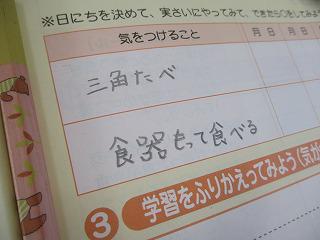 ※日にちを決めて、実さいにやってみて、できたら○をしてみよ
気をつけること
月 日 月 日
三角たべ
食器もって食べる
③ 学習をふりかえってみよう(気が